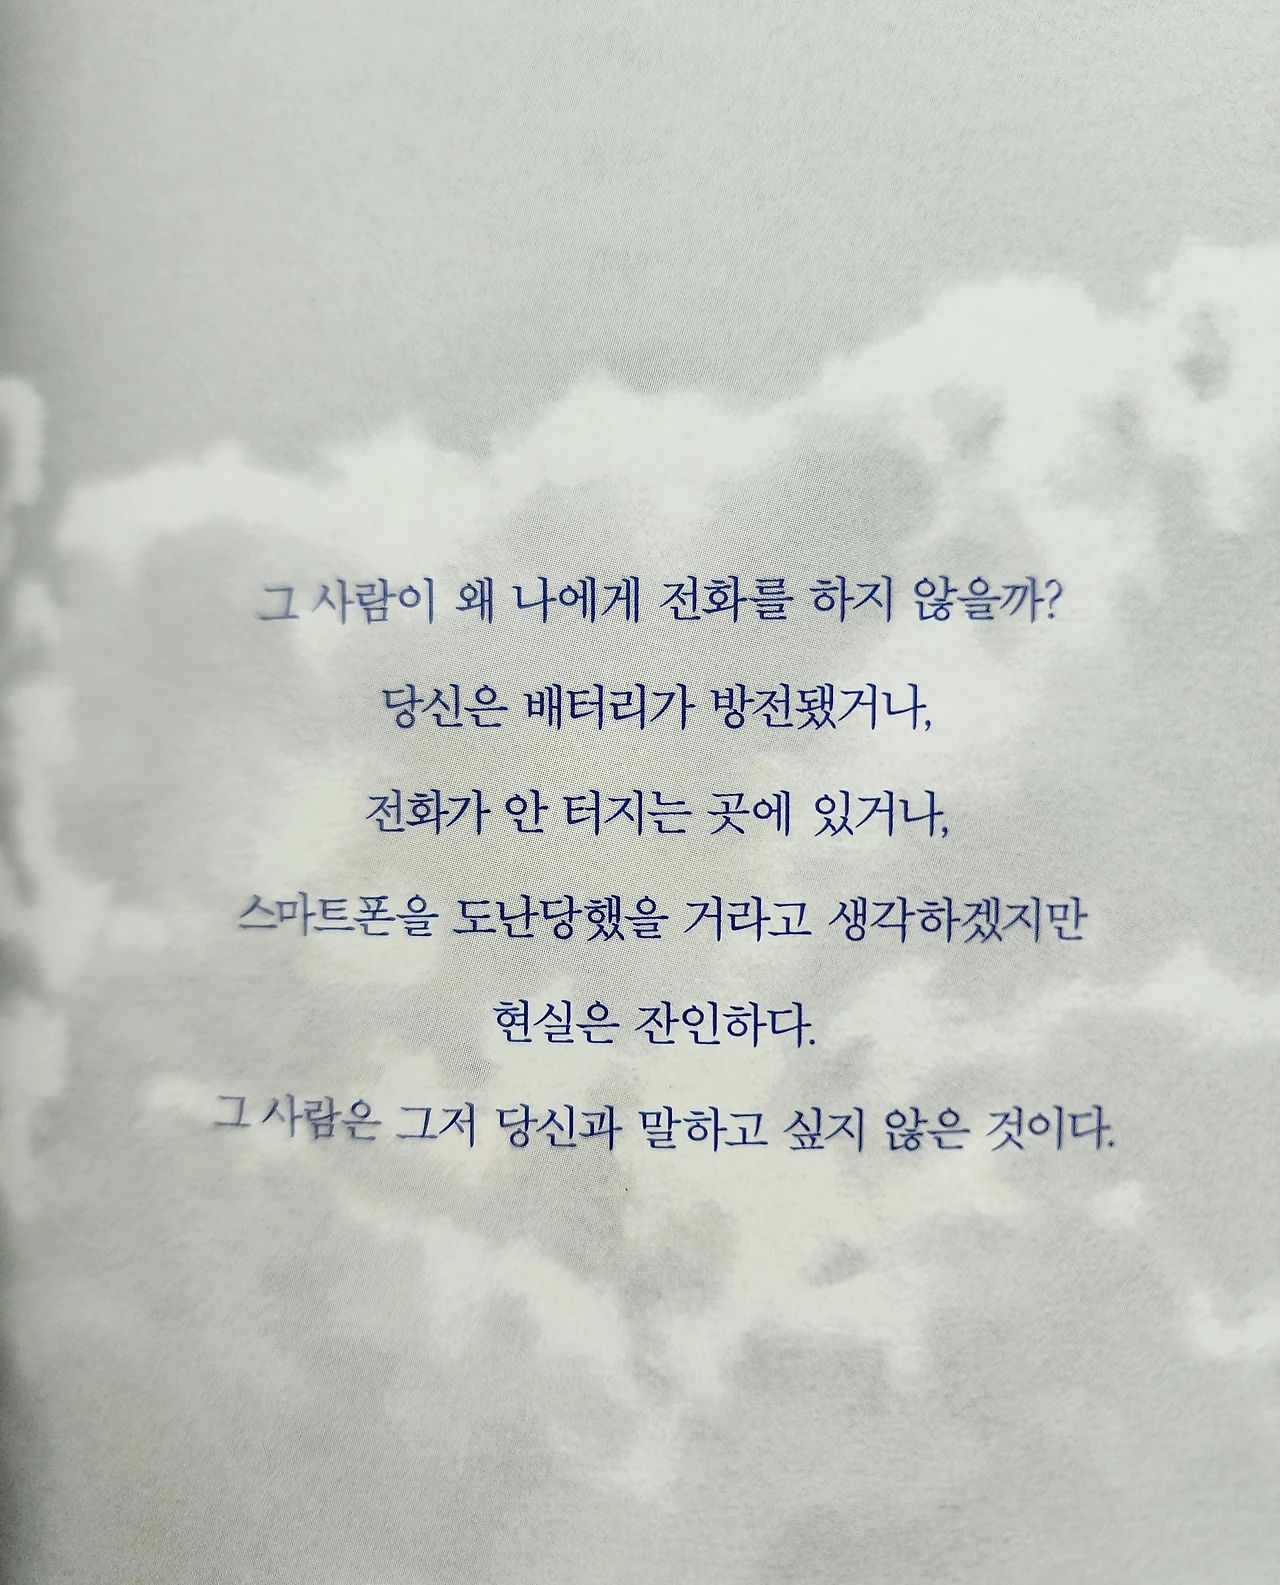 그 사람이 왜 나에게 전화를 하지 않을까?
당신은 배터리가 방전됐거나,
전화가 안 터지는 곳에 있거나,
스마트폰을 도난당했을 거라고 생각하겠지만
현실은 잔인하다.
그 사람은 그저 당신과 말하고 싶지 않은 것이다.